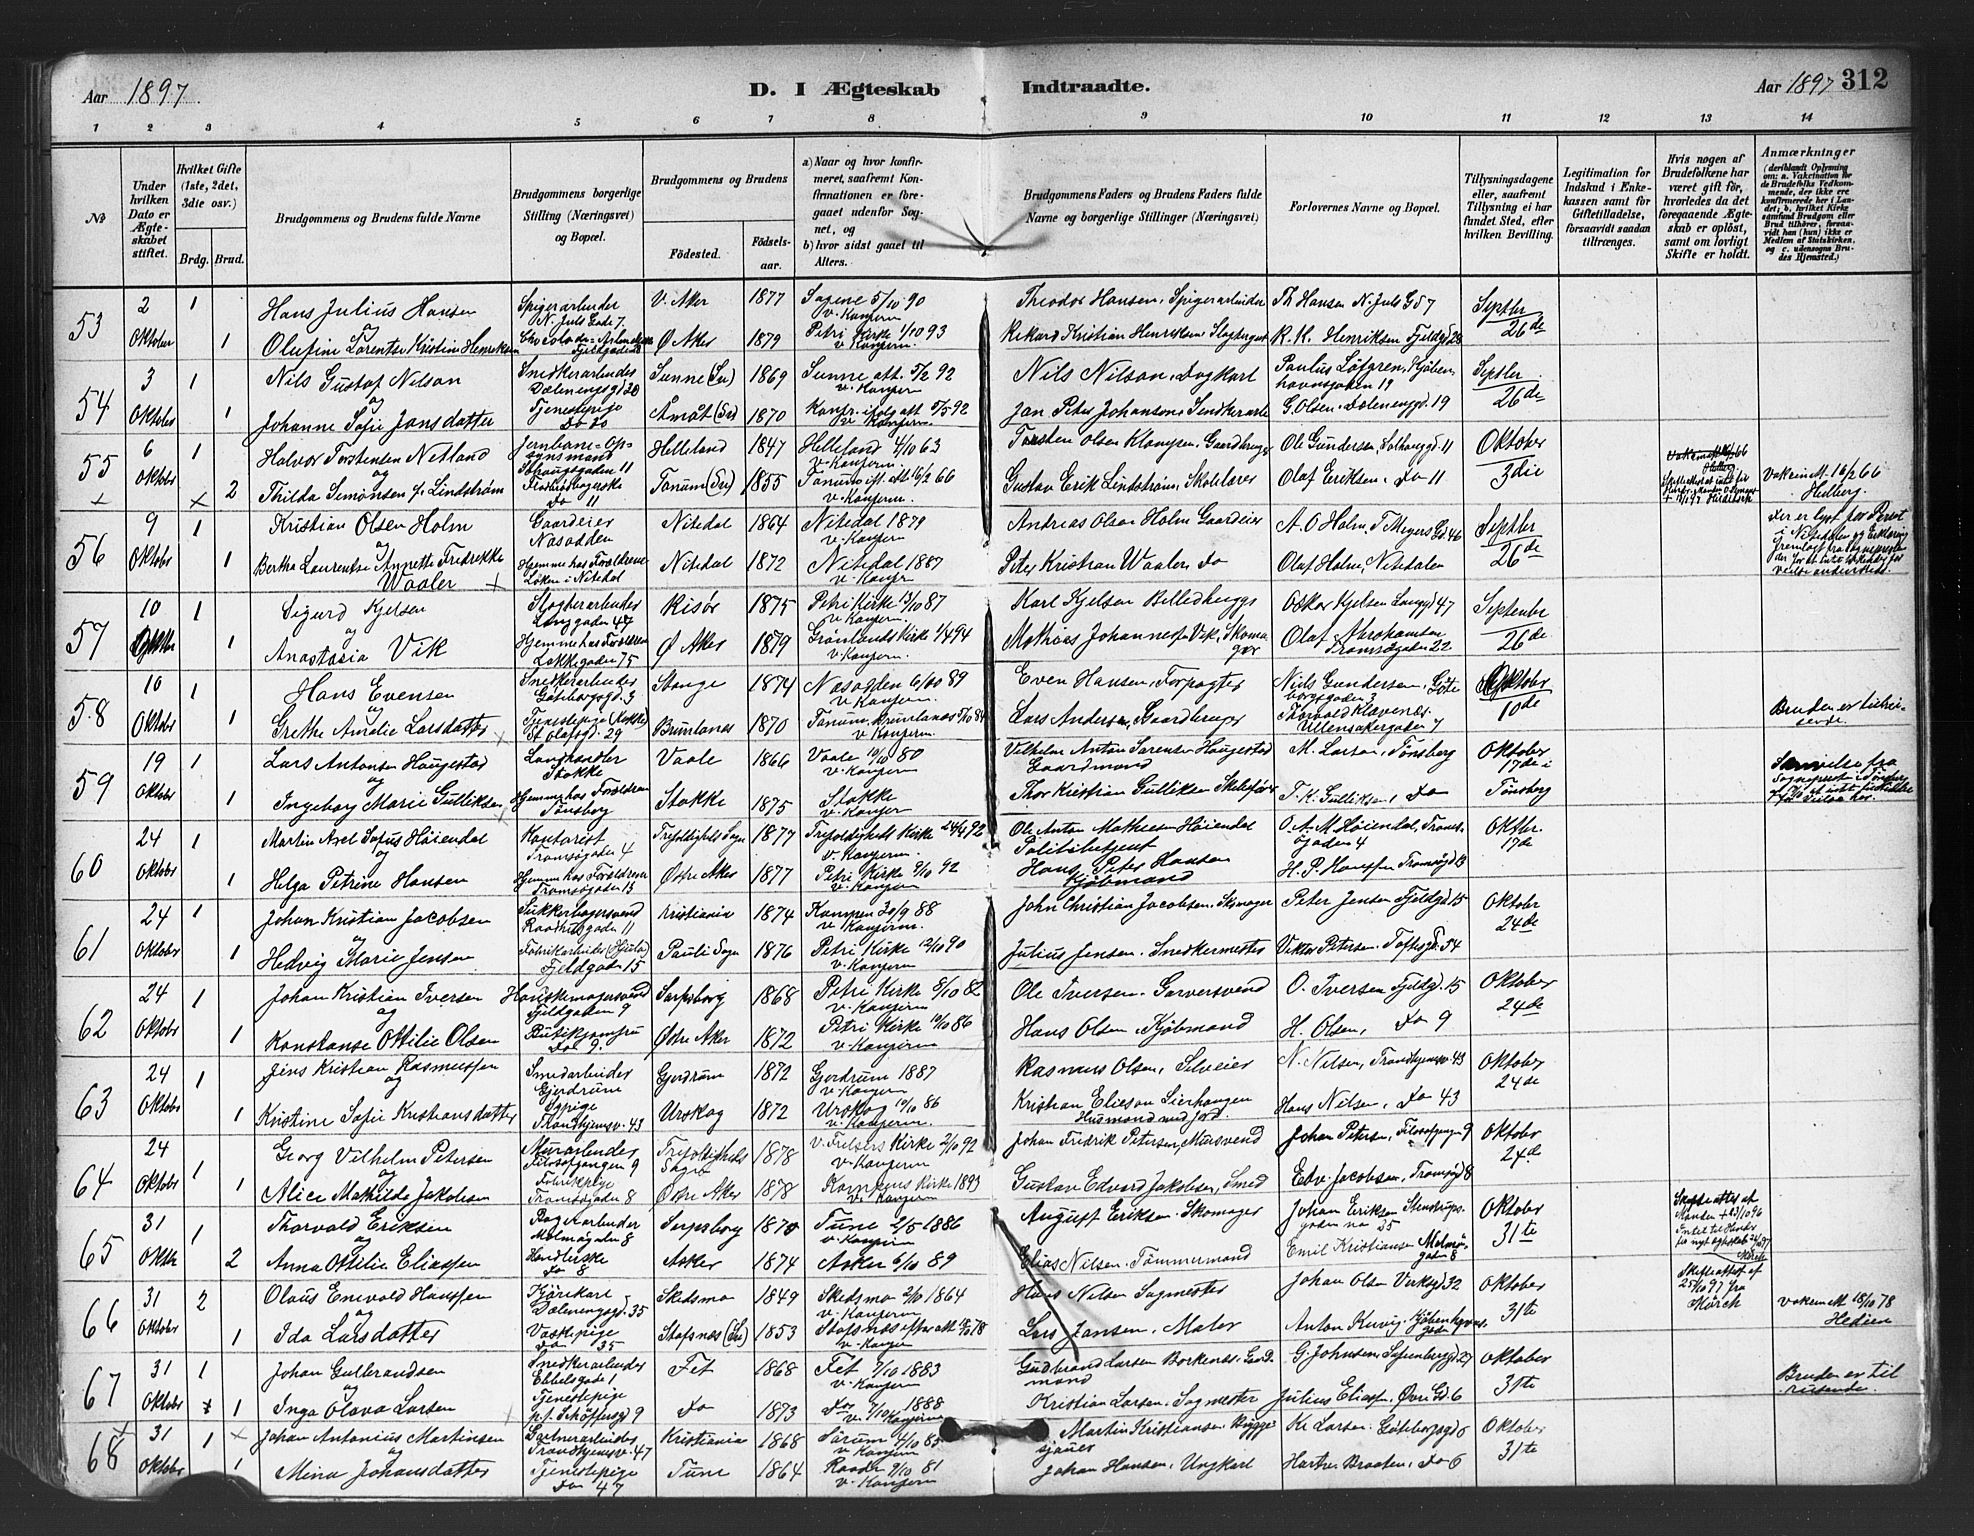 Aar 1897. D. I Ægteskab Indtraadte. Aar 1897 312
1 2 3 4 5 6 7 8 9 10 11 12 13 14
№
Under hvilken Dato er Ægteskabet stiftet.
Hvilket Gifte (1ste, 2det, 3die osv.)
Brdg. Brud.
Brudgommens og Brudens fulde Navne
Brudgommens borgerlige Stilling (Næringsvei) og Bopæl.
Brudgommens og Brudens
Fødested. Fødselsaar.
a) Naar og hvor konfirmeret, saafremt Konfirmationen er foregaaet udenfor Sognet, og
b) hvor sidst gaaet til Alters.
Brudgommens Faders og Brudens Faders fulde Navne og borgerlige Stillinger (Næringsvei)
Forlovernes Navne og Bopæl.
Tillysningsdagene eller, saafremt Tillysning ei har fundet Sted, efter hvilken Bevilling.
Legitimation for Indskud i Enkekassen samt for Giftetilladelse, forsaavidt saadan tiltrænges.
Hvis nogen af Brudefolkene har været gift før, hvorledes da det foregaaende Ægteskab er opløst, samt om lovligt Skifte er holdt.
Anmærkninger
(deriblandt Oplysning om: a. Vakcination for de Brudefolks Vedkommende, der ikke ere konfirmerede her i Landet; b. hvilket Kirkesamfund Brudgom eller Brud tilhører, forsaavidt han (hun) ikke er Medlem af Statskirken, og c. udensogns Brudes Hjemsted.)
53 2 Oktober 1 Hans Julius Hansen Spigerarbeider N. Juls Gade 7 V. Aker 1877 Sagene 5/10 90 v. Konfirm Theodor Hansen, Spigerarbeider Th Hansen N. Juls Gd 7 Septbr 26de
og
1 Olufine Lorentse Kristine Henriksen Ø Aker 1879 Petri Kirke 1/10 93 v. Konfirm. Rikard Kristian Henriksen R. K. Henriksen Fjeldgd 28
54 3 Oktober 1 Nils Gustaf Nilson Snedkerarbeider Dælenengd 20 Sunne (Sv) 1869 Sunne att. 5/2 92 v. Konfirm Nils Nilson, Dagkarl Paulus Löfgren, Kjøbenhavnsgaden 19 Septbr 26de
og
1 Johanne Sofie Jansdatter Tjenestepige Do 20 Åmåt (Sv) 1870 v. Konfirm. Jan Peter Johanson, G. Olsen, Dælenengd. 19
55 6 Oktober 1 Halvor Torstensen Netland Jernbane=Opsynsmand Helleland 1847 Helleland 4/10 63 v. Konfirm Torsten Olsen Ole Gundersen, Oktober 3die
og
2 Thilda Simonsen f. Lindstrøm Do 11 Tanum (Sv) 1855 v. Konfirm. Gustav Erik Lindstrøm, Skolelærer Olaf Eriksen, Do 11 Vakcin Att. 16/2 66 Helberg.
56 9 Oktober 1 Kristian Olsen Holm Gaardeier Næsodden Nitedal 1864 Nitedal 1879 v. Konfirm Andreas Olsen Holm Gaardeier A. O Holm, T Meyers Gd 46 Septbr 26de
og
1 Bertha Laurentse Annette Fredrikke Waaler Hjemme hos Forældrene Løken i Nitedal Nitedal 1872 Nitedal 1887 v. Konfir Peter Kristian Waaler, Do Olaf Holm, Nitedalen
57 10 Oktbr 1 Sigurd Kjelsen Slagterarbeider Langgaden 47 Risør 1875 Petri Kirke 13/10 87 v. Konfirm. Karl Kjelsen Billedhugger Oskar Kjelsen Langgd 47 September 26de
og
1 Anastasia Vik Hjemme hos Forældrene Lakkegaden 75 Ø Aker 1879 Grønlands Kirke 1/4 94 v. Konfirm. Mathias Johannesen Vik, Skomager Olaf Abrahamsen Tromsøgaden 22
58 10 Oktober 1 Hans Evensen Snedkerarbeider Gøteborgsgd. 3 Stange 1874 Næsodden 6/10 89 v. Konfirm. Even Hansen, Forpagter Niels Gundersen, Gøteborgsgaden 3 Oktober 10de
og
1 Grethe Amalie Larsdatter Tjenestepige St Olafsgd. 29 Brunlanæs 1870 v. Konfirm. Lars Andersen, Gaardbruger Thorvald Klavenæs Ullensakergaden 7 Bruden er tilreisende.
59 19 Oktober 1 Lars Antonsen Haugestad Landhandler Stokke Vaale 1866 Vaale 10/10 80 v. Konfirm Vilhelm Anton Sørensen Haugestad Gaardmand M. Larsen, Tønsberg Oktober 17de i Tønsberg
og
1 Ingeborg Marie Gulliksen Hjemme hos Forældrene Tønsberg Stokke 1875 Stokke v. Konfir Thor Kristian Gulliksen Skibsfører T. K. Gulliksen, Do
60 24 Oktober 1 Martin Axel Sofus Høiendal Kontorist Tromsøgaden 4 Trefoldigheds Sogn 1877 Trefoldigheds Kirke 24/4 92 v. Konfirm. Ole Anton Mathiesen Høiendal Politibetjent O. A. M. Høiendal, Tromsøgaden 4 Oktbr. 17de
og
1 Helga Petrine Hansen Hjemme hos Forældrene Tromsøgaden 13 Østre Aker 1877 Petri Kirke 9/10 92 v. Konfirm Hans Peter Hansen Kjøbmand H. P. Hansen Tromsøgd 13
61 24 Oktober 1 Johan Kristian Jacobsen Sukkerbagersvend Raadhusgaden 11 Kristiania 1874 Kampen 30/9 88 v. Konfirm. John Christian Jacobsen, Skomager Peter Jensen Fjeldgd 15 Oktobr 24de
og
1 Hedvig Marie Jensen Fjeldgaden 15 Pauli Sogn 1876 Petri Kirke 12/10 90 v. Konfirm. Julius Jensen. Snedkermester Viktor Petersen. Toftesgd. 54
62 24 Oktobr 1 Johan Kristian Iversen Hanskemagersvend Fjeldgaden 9 Sarpsborg 1868 Petri Kirke 8/10 82 v. Konfirm Ole Iversen. Garversvend O. Iversen Fjeldgd. 15 Oktober 24de
og
1 Konstanse Ottilie Olsen Butikjomfru Do 9. Østre Aker 1872 Petri Kirke 10/10 86 v. Konfirm Hans Olsen, Kjøbmand H. Olsen, Do 9
63 24 Oktober 1 Jens Kristian Rasmussen Smedarbeider Gjerdrum Gjerdrum 1872 Gjerdrum 1887 v. Konfirm Rasmus Olsen, Selveier N. Nilsen, Trondhjemsv. 43 Oktober 24de
og
1 Kristine Sofie Kristiansdatter Trondhjemsv. 43 Urskog 1872 Urskog 10/10 86 v. Konfirm. Kristian Eliesen Lierhaugen Husmand med Jord. Hans Nilsen, Do 43
64 24 Oktobr 1 Georg Vilhelm Petersen Murarbeider Filosofgangen 9 Trefoldigheds Sogn 1878 v. Frelsers Kirke 2/10 92 v. Konfirm Johan Fredrik Petersen, Mursvend Johan Petersen, Filosofgangen 9 Oktobr 24de
og
1 Alice Mathilde Jakobsen Fabrikpige Tromsøgaden 8 Østre Aker 1878 Kampens Kirke 1893 v. Konfirm Gustav Edvard Jakobsen, Smed Edv. Jacobsen, Tromsøgd 8
65 31 Oktbr 1 Thorvald Eriksen Bagerarbeider Malmøgaden 8 Sarpsborg 1870 Tune 2/5 1886 v. Konfirm August Eriksen. Skomager Johan Eriksen Stenstrupsgaden no 25 Oktober 31te
og
2 Anna Ottilie Eliassen Do 8 Asker 1874 Asker 6/10 89 Elias Nilsen. Tømmermand Emil Kristiansen Malmøgaden 8
66 31 Oktober 2 Olaus Enevold Hanssen Kjørekarl Dælenengsgd. 35 Skedsmo 1849 Skedsmo 2/10 1864 v. Konfirm Hans Nilsen Sagmester Johan Olsen Verksgd 32 Oktober 31te Skifteattest af 25/10 97 fra Mørch Vakcin Att 18/10 78 Hedien
og
1 Ida Larsdatter Vaskepige Do 35 Stafsnæs (Sv) 1853 v. Konfirm Lars Jansen. Maler Anton Ruvig,
67 31 Oktober 1 Johan Gulbrandsen Snedkerarbeider Ebbelsgade 1 Fet 1868 Fet 7/10 1883 v. Konfirm Gudbrand Larsen Borkenæs, Gaardmand G. Johnsen, Oktober 31te Bruden er tilreisende.
og
1 Inga Olava Larsen Tjenestepige p.t. Schøffersgd 9 Do 1873 Do 7/10 1888 v. Konfirm Kristian Larsen. Sagmester Julius Eliassen. Øvre Gd. 6
68 31 Oktober 1 Johan Antonius Martinsen Gartnerarbeider Trondhjemsv. 47 Kristiania 1868 Sørum 4/10 85 v. Konfirm Martin Kristiansen Bryggesjauer Kr Larsen. Gøteborgsgd 6 Oktober 31te
og
1 Mina Johansdatter Tjenestepige Do 47 Tune 1864 Raade 9/10 81 v. Konfirm Johan Hansen, Ungkarl Braaten, Do 6